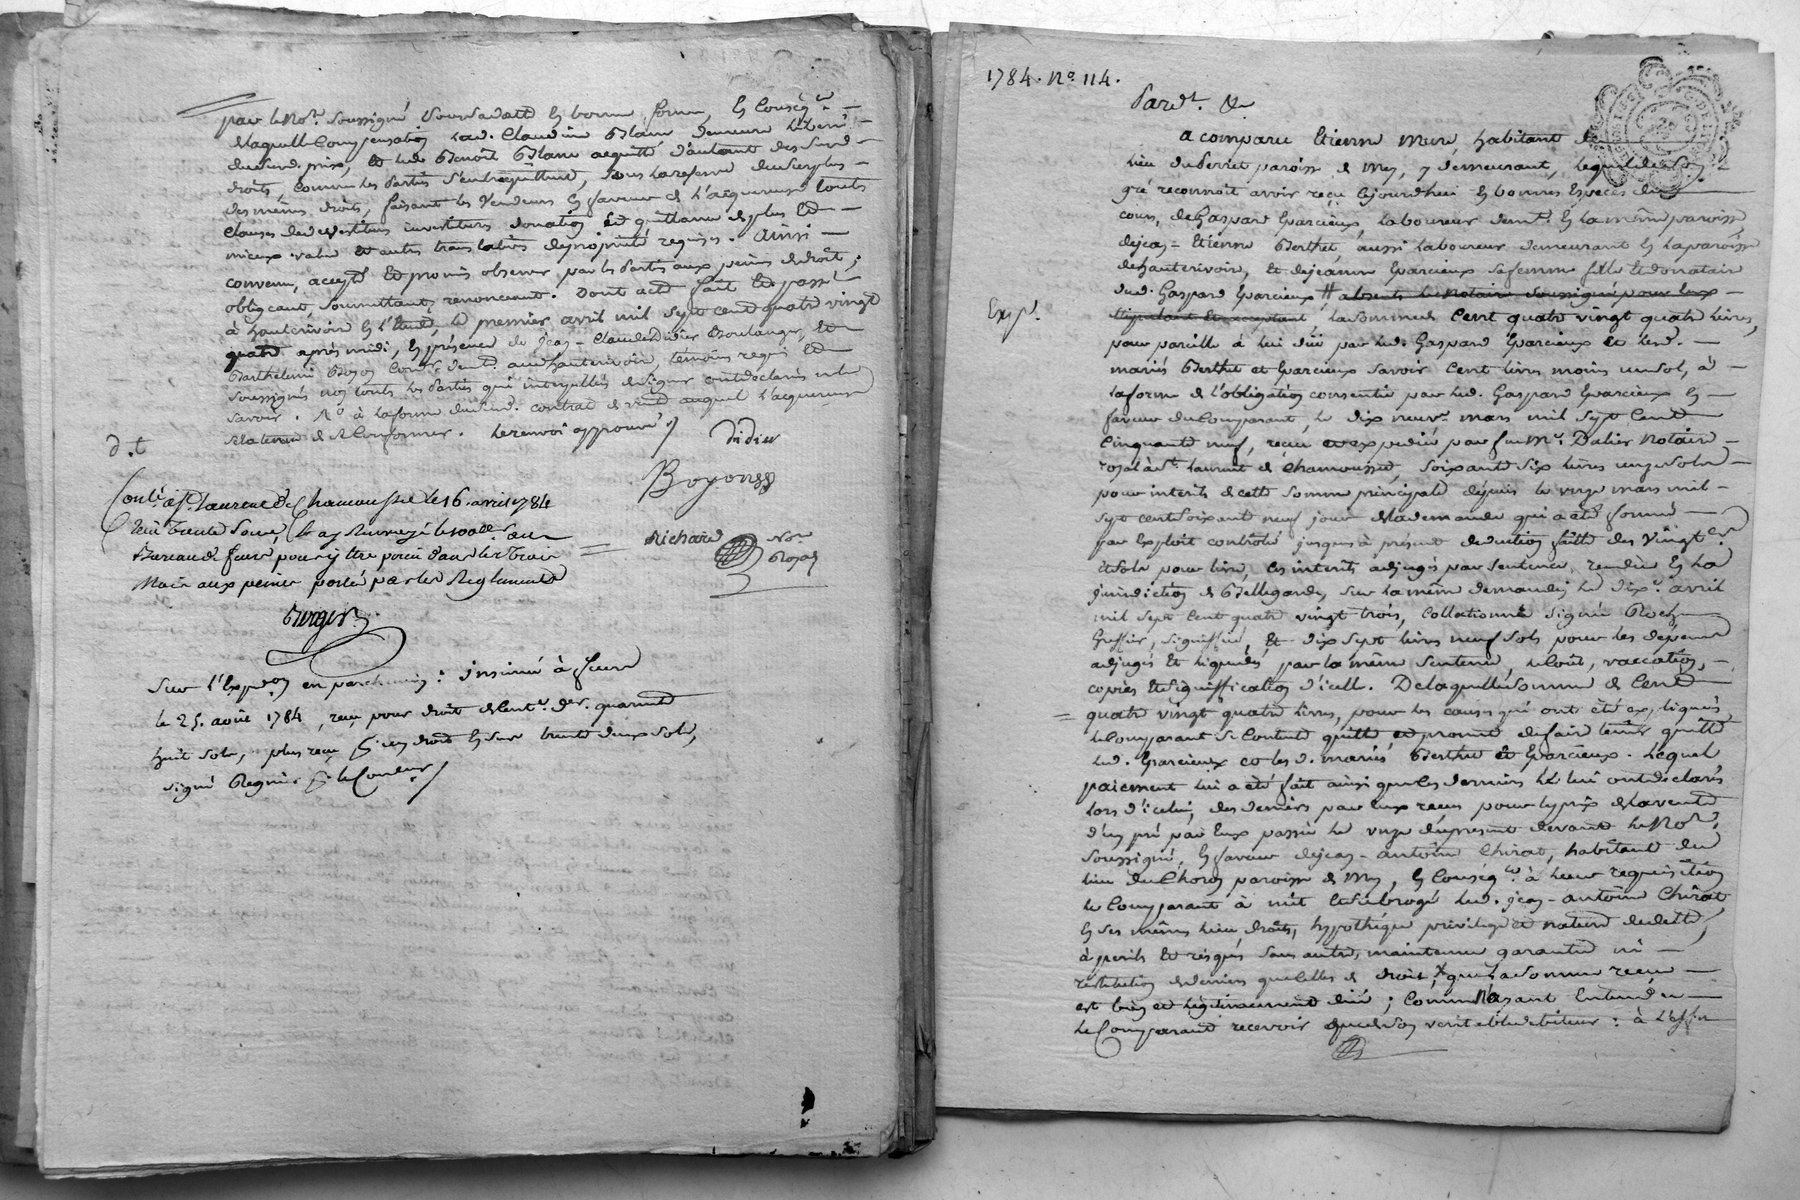 par le No.re soussigné sous sa datte En bonne forme, En Conséq.ce
de laquelle Compensation lad. Claudine Blanc demeure libérée
dud. prix, Et led. Benoît Blanc acquitté d'autant desd.
droits, comme les Parties s'entrequittent, sous la reserve du surplus
des mêmes droits, faisant les Vendeurs En faveur de l'acquereuse toutes
Clauses de devestiture investiture donation Et quittance de plus Et
mieux value Et autres translatives de propriété requises. Ainsi
convenu, accepté Et promis observer par les Parties aux peines de droit,
obligeant, soumettant, renonceant. Dont acte fait Et passé
à hauterivoire En l'Etude, le premier avril mil sept cent quatre vingt
quatre après midi, En présence de Jean-Claude Didier Boulanger, Et
Barthelemi Boyon demt. aud. hauterivoire, temoins requis Et
soussignés non toutes les Parties qui interpellées de signer ont déclaré ne le
savoir. à la forme dud. contrat de vente auquel l'acquereuse
sera tenue de se Conformer. le renvoi approuvé
d.t
Didier
Boyon
Richard No.re Royal
Con.lé à St. Laurent de Chamousset le 16 avril 1784
reçu trente Sous, au
Bureau de feurs pour y être porté dans les trois
Mois aux peines portées par les Reglements
Berger
Sur l'Exp.on en parchemin: insinué à feurs
le 25. août 1784, reçu pour droit de Cent.e der. quarante
huit sols, plus reçu trente deux sols,
signé Regnier
1784. No. 114.
Pard.t &a
A comparu Etienne Mure, habitant du
lieu du Perret paroisse de Mey, y demeurant, lequel de son
gré reconnoit avoir reçu cejourdhui En bonnes Especes de
cours, de Gaspard Garcieux, laboureur demt. En la même paroisse,
de jean-Etienne Berthet, aussi laboureur demeurant En la paroisse
de hauterivoire, Et de jeanne Garcieux sa femme fille Et donataire
dud. Gaspard Garcieux # absents le Notaire soussigné pour Eux
Exp.
stipulant Et acceptant la somme de Cent quatre vingt quatre livres,
pour pareille à lui due par led. Gaspard Garcieux Et lesd.
mariés Berthet et Garcieux savoir Cent livres moins un sol, à
la forme de l'obligation consentie par led. Gaspard Garcieux En
faveur du Comparant, le dix neuv.e mars mil sept Cent
Cinquante neuf, reçue et expediée par feu M.e Dalier Notaire
royal à St. laurent de Chamousset, soixante six livres onze sols
pour interêts de cette somme principale depuis le onze mars mil
sept cent soixante neuf jour de la demande qui a été formée
par Exploit contrôlé jusques à présent deduction faitte des Vingt.es
Et sols pour livre, ces interêts adjugés par sentence, rendue En la
juridiction de Bellegarde, sur la même demande, le dix.e avril
mil sept cent quatre vingt trois, Collationné signée Roch
Greffier, signiffiée, Et dix sept livres neuf sols pour les depens
adjugés Et liquidés par la même sentence, le Coût, vaccation,
copies Et signiffication d'icelle. De laquelle somme de Cent
quatre vingt quatre livres, pour les causes qui ont été expliquées,
le Comparant se Contente quitte et promet de faire tenir quitte
led. Garcieux et lesd. mariés Berthet et Garcieux. Lequel
paiement lui a été fait ainsi que les derniers le lui ont déclaré
lors d'icelui, des deniers par Eux reçus pour le prix de la vente
d'un pré par Eux passée le onze du présent devant le No.re
soussigné, En faveur de jean-antoine Chirat, habitant du
lieu du Choron paroisse de Mey, En Conséq.ce à leur requisition
le Comparant à mit Et subrogé led. jean-antoine Chirat
En ses mêmes lieu, droits, hypothéque privilège et nature de dette,
à perils Et risques sans autre, maintenue garantie ni
restitution de deniers que celles de droit, que la somme reçue
est bien et légitimement due; Comme n'ayant Entendu
le Comparant recevoir que de son veritable debiteur: à l'effet